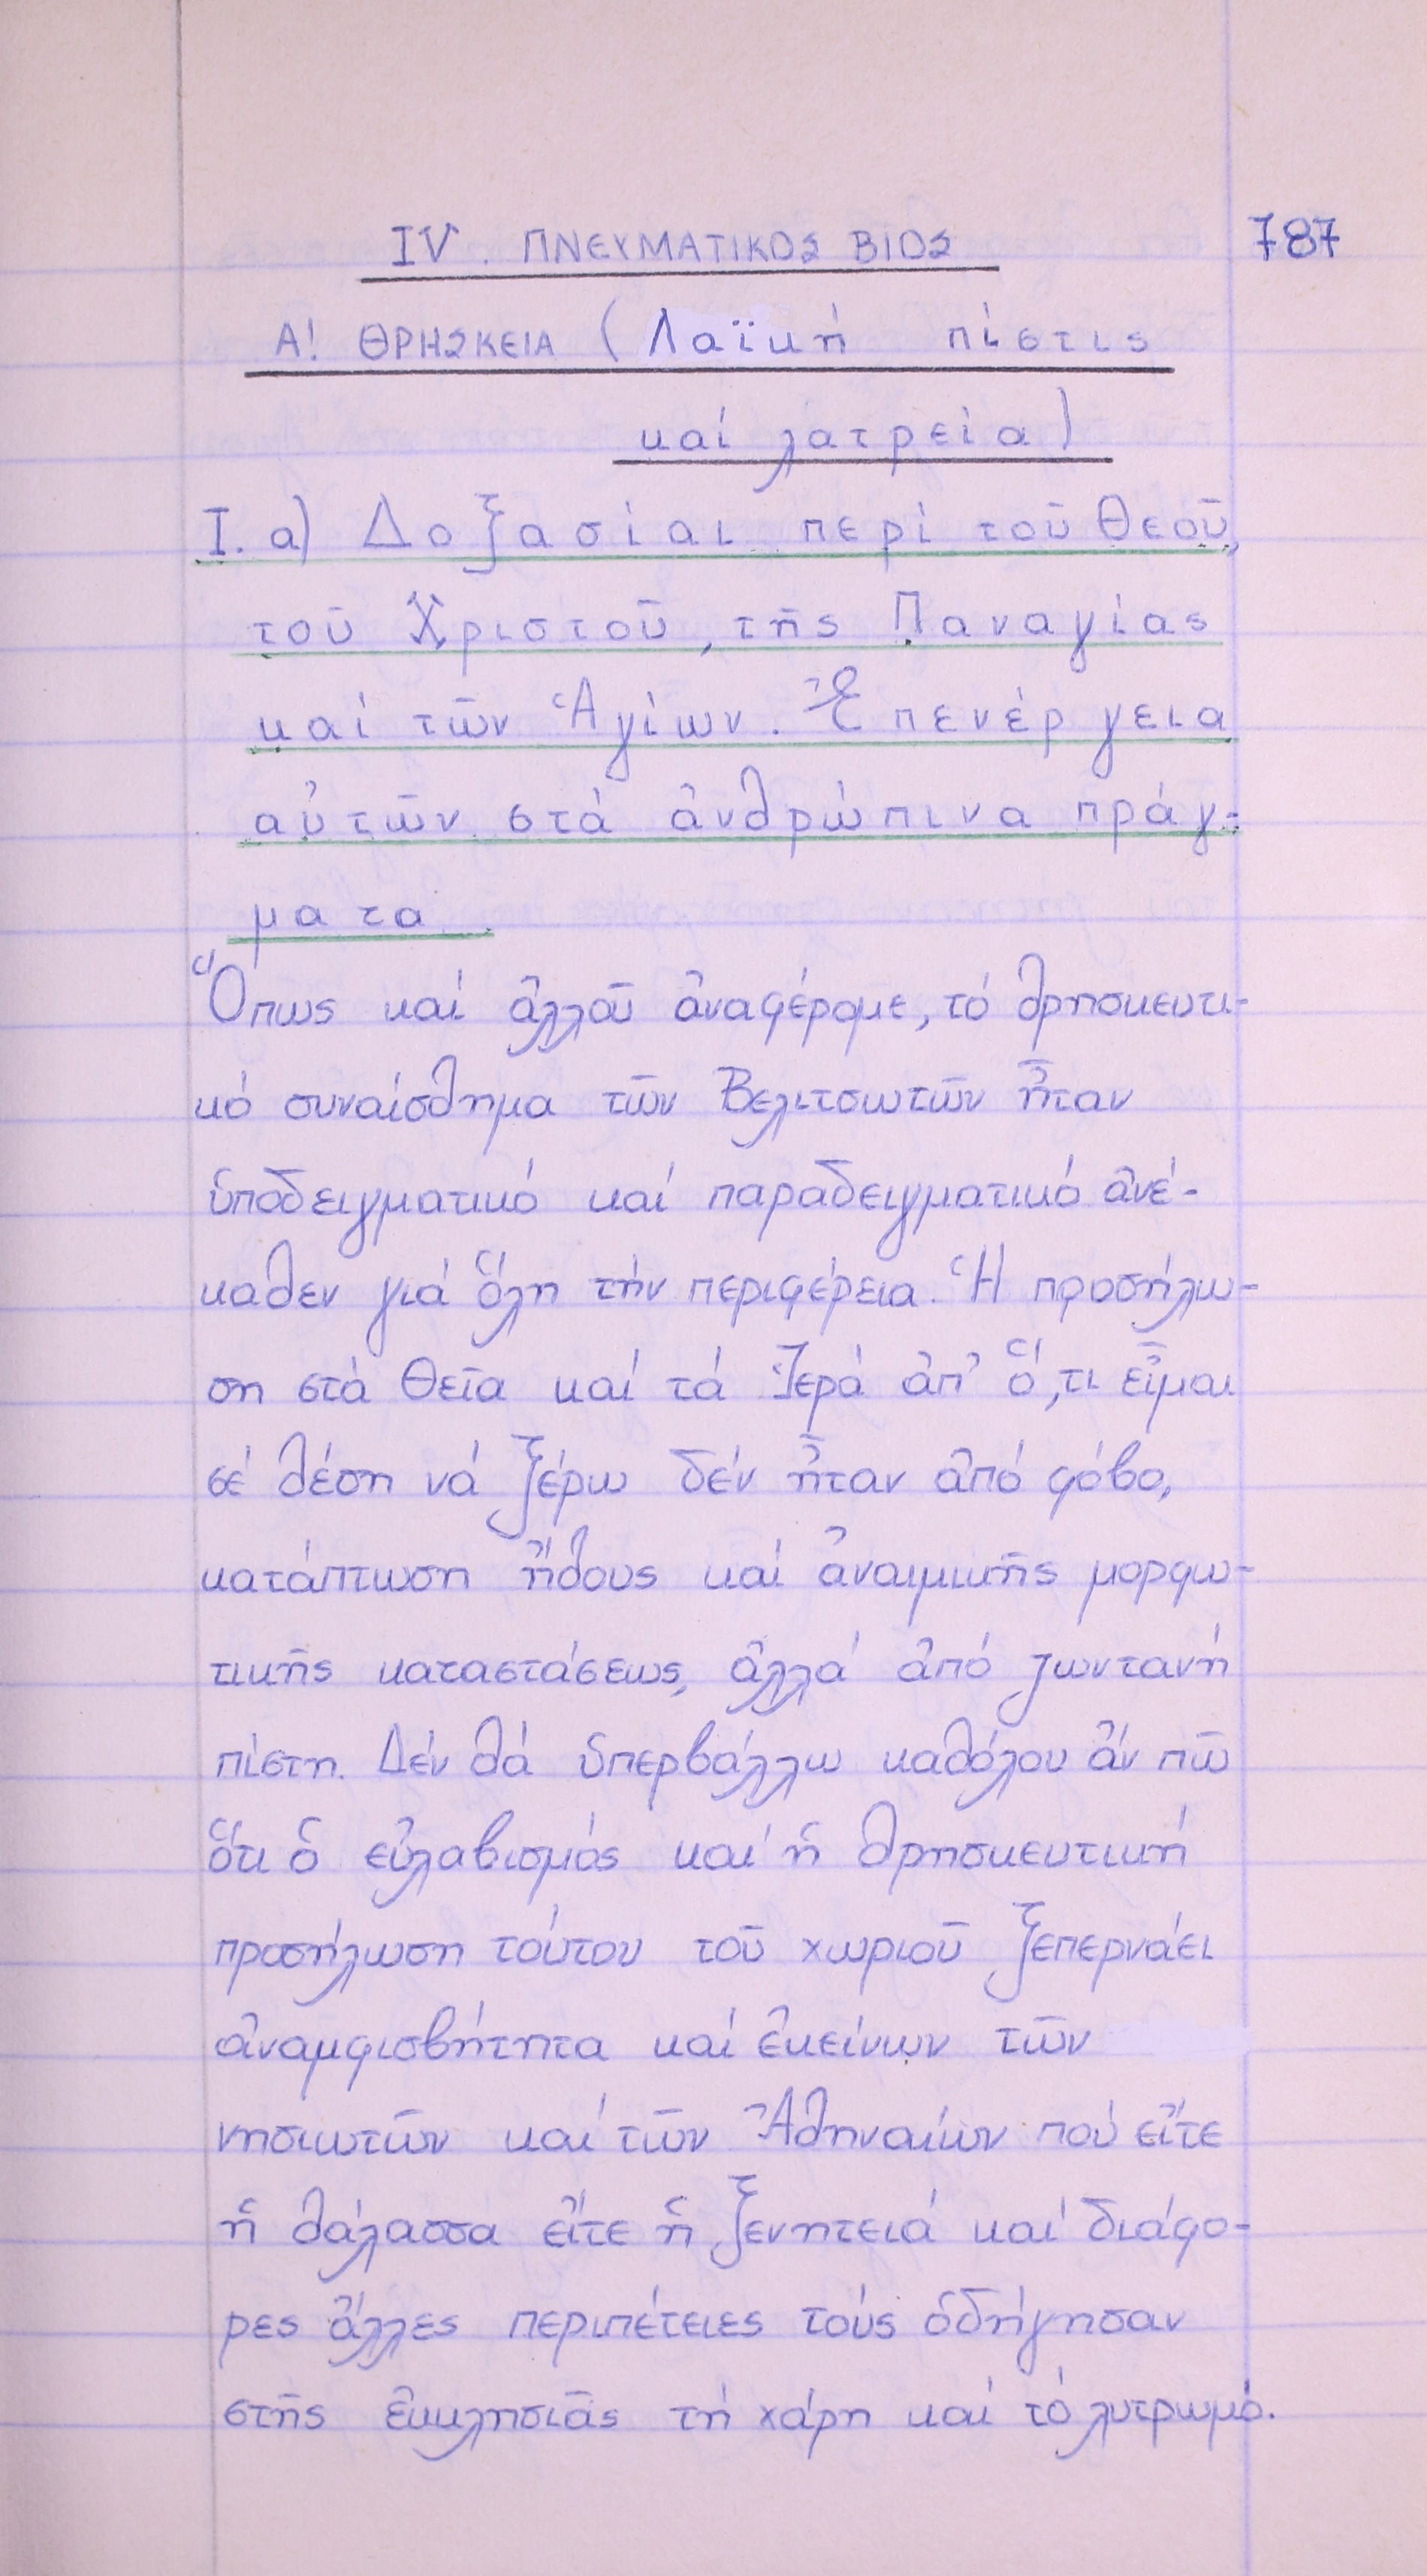 787
IV. ΠΝΕΥΜΑΤΙΚΟΣ ΒΙΟΣ
Α! ΘΡΗΣΚΕΙΑ (Λαϊκή πίστις
καί λατρεία)
I. α) Δοξασίαι περί τοῦ Θεοῦ,
τοῦ Χριστοῦ, τῆς Παναγίας
καί τῶν Ἁγίων. Ἐπενέργεια
αὐτῶν στά ἀνθρώπινα πράγ-
ματα.
Ὅπως καί ἀλλοῦ ἀναφέρομε, τό θρησκευτι-
κό συναίσθημα τῶν Βελιτσωτῶν ἦταν
ὑποδειγματικό καί παραδειγματικό ἀνέ-
καθεν γιά ὅλη τήν περιφέρεια. Ἡ προσήλω-
ση στά Θεῖα καί τά Ἱερά ἀπ' ὅ,τι εἶμαι
σέ θέση νά ξέρω δέν ἦταν ἀπό φόβο,
κατάπτωση ἤθους καί ἀναιμικῆς μορφω-
τικῆς καταστάσεως, ἀλλά ἀπό ζωντανή
πίστη. Δέν θά ὑπερβάλλω καθόλου ἄν πῶ
ὅτι ὁ εὐλαβισμός καί ἡ θρησκευτική
προσήλωση τούτου τοῦ χωριοῦ ξεπερνάει
ἀναμφισβήτητα καί ἐκείνων τῶν
νησιωτῶν καί τῶν Ἀθηναίων πού εἴτε
ἡ θάλασσα εἴτε ἡ ξενητειά καί διάφο-
ρες ἄλλες περιπέτειες τούς ὁδήγησαν
στῆς ἐκκλησιᾶς τή χάρη καί τό λυτρωμό.